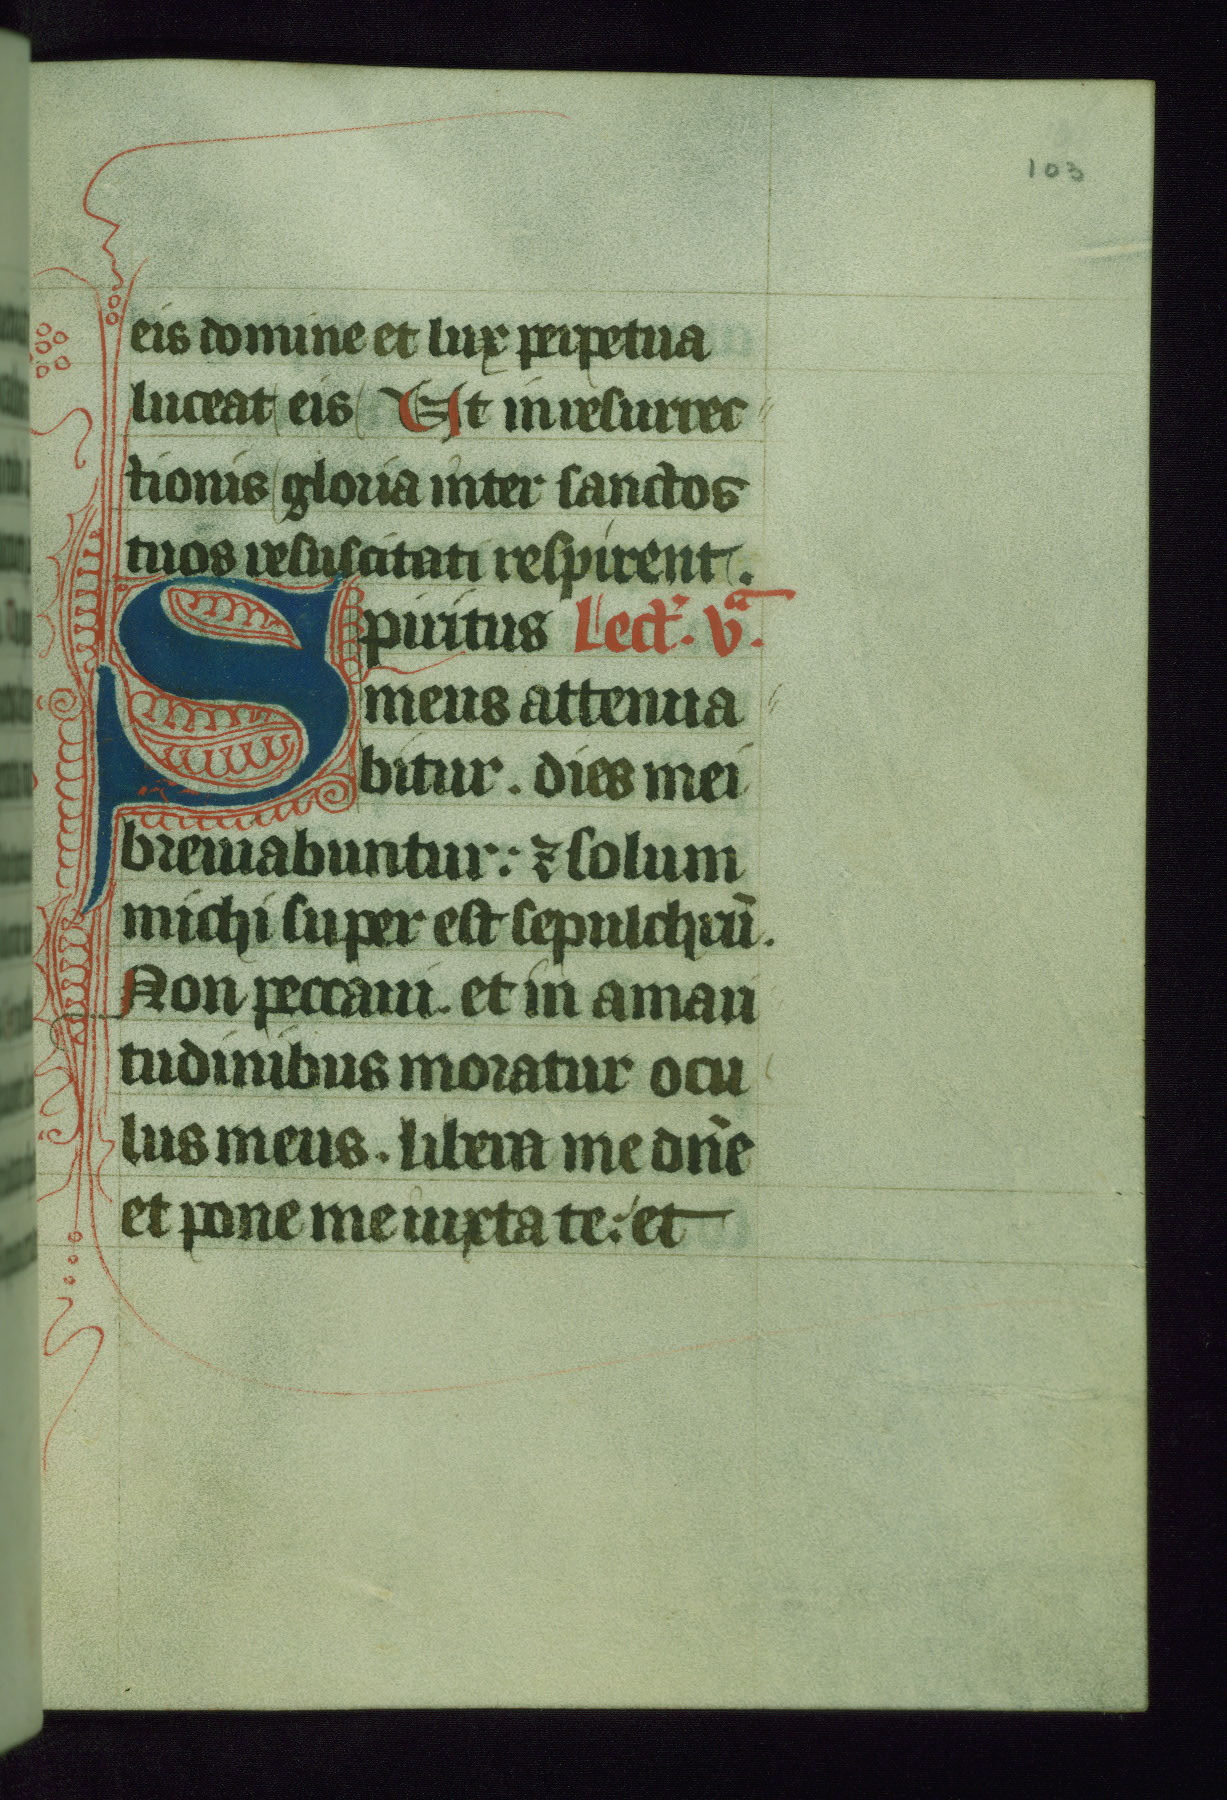 103
eis domine et lux perpetua
luceat eis Ut in resurrec
tionis gloria inter sanctos
tuos resuscitati respirent.
Spiritus Lect. va.
meus attenua
bitur. dies mei
breuiabuntur: ⁊ solum
michi super est sepulchrū.
Non peccaui. et in amari
tudinibus moratur ocu
lus meus. Libera me dn̄e
et pone me iuxta te: et